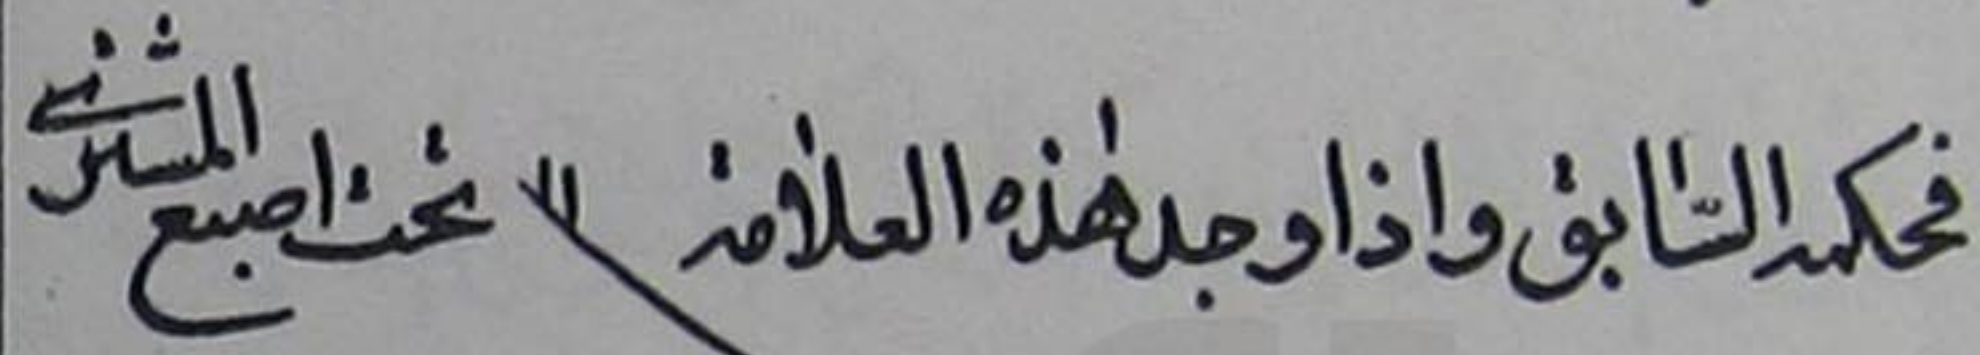 فحكمه السّابق واذا وجد هٰذه العلامة تحت اصبع المشتری